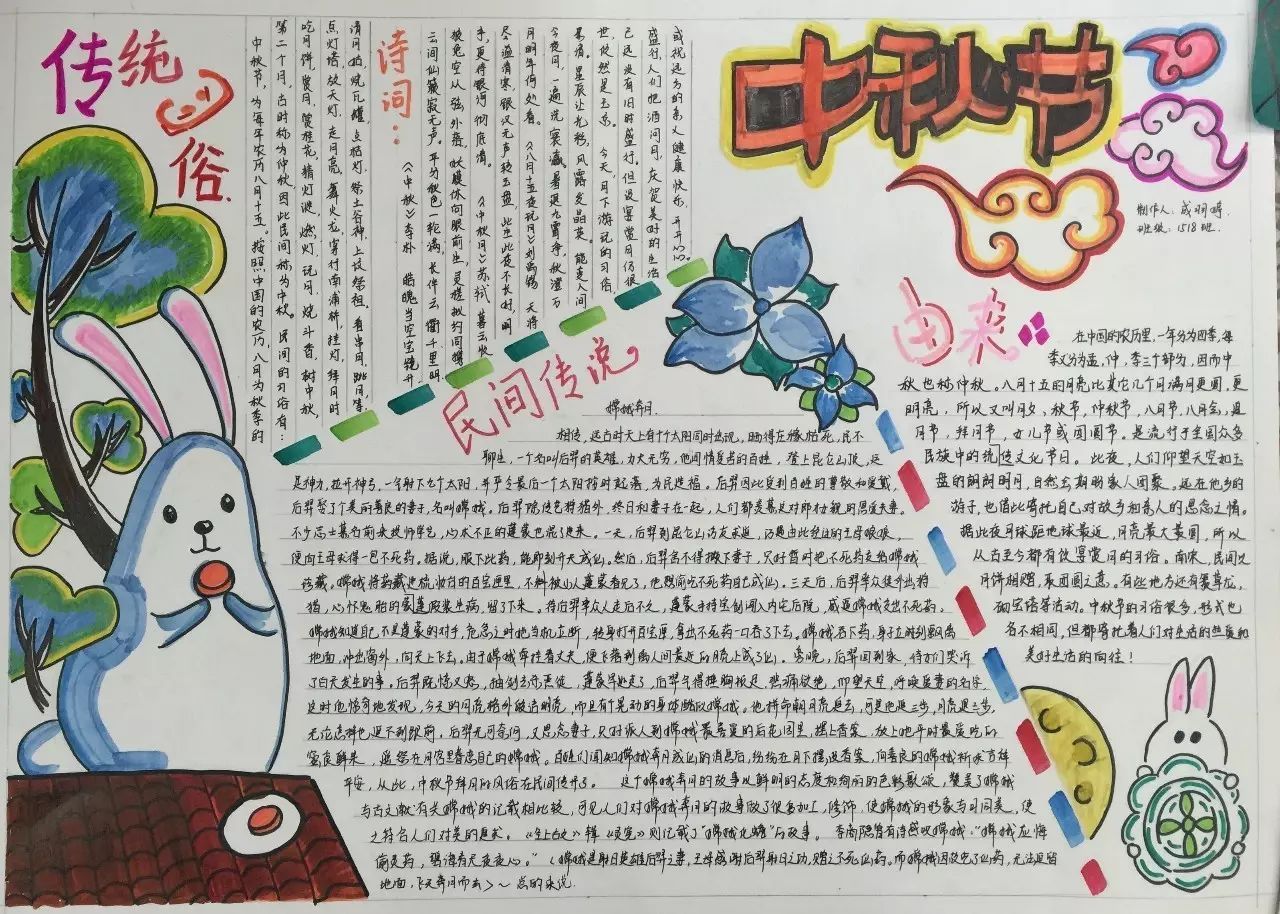 中秋节
制作人：
班级：1518班.
传统习俗
中秋节，为每年农历八月十五。按照中国的农历，八月为秋季的
第二个月，古时称为仲秋，因此民间称为中秋。民间的习俗有：
吃月饼、赏月、赏桂花、猜灯谜、燃灯、玩月、烧斗香、树中秋、
点灯塔、放天灯、走月亮、舞火龙、穿村南浦桥、挂灯、拜月时
清月拍、烧瓦罐、点桔灯、祭土谷神、上坟祭祖、看串月、跳月等
诗词：
《中秋》李朴 皓魄当空宝镜升
云间仙籁寂无声。平分秋色一轮满，长伴云衢千里明
狡兔空从弦外落，妖蟆休向眼前生，灵槎拟约同携
手，更待银河彻底清。《中秋月》苏轼 暮云收
尽溢清寒，银汉无声转玉盘，此生此夜不长好，明
月明年何处看。《八月十五夜玩月》刘禹锡 天将
今夜月，一遍洗寰瀛。暑退九霄净，秋澄万
景清。星辰让光彩，风露发晶英。能变人间
世，攸然是玉京。今天，月下游玩的习俗，
已远没有旧时盛行。但设宴赏月仍很
盛行，人们把酒问月，庆贺美好的生活
或祝远方的亲人健康快乐，开开心心。
民间传说
嫦娥奔月.
相传，远古时天上有十个太阳同时出现，晒得庄稼枯死，民不
聊生，一个名叫后羿的英雄，力大无穷，他同情受苦的百姓，登上昆仑山顶，运
足神力，拉开神弓，一气射下九个太阳，并严令最后一个太阳按时起落，为民造福。后羿因此受到百姓的尊敬和爱戴，
后羿娶了个美丽善良的妻子，名叫嫦娥。后羿除传艺狩猎外，终日和妻子在一起，人们都羡慕这对郎才女貌的恩爱夫妻。
不少志士慕名前来投师学艺，心术不正的蓬蒙也混了进来。一天，后羿到昆仑山访友求道，巧遇由此经过的王母娘娘，
便向王母求得一包不死药。据说，服下此药，能即刻升天成仙。然后，后羿舍不得撇下妻子，只好暂时把不死药交给嫦娥
珍藏。嫦娥将药藏进梳妆台的百宝匣里，不料被小人蓬蒙看见了，他想偷吃不死药自己成仙。三天后，后羿率众徒外出狩
猎，心怀鬼胎的蓬蒙假装生病，留了下来。待后羿率众人走后不久，蓬蒙手持宝剑闯入内宅后院，威逼嫦娥交出不死药。
嫦娥知道自己不是蓬蒙的对手，危急之时她当机立断，转身打开百宝匣，拿出不死药一口吞了下去。嫦娥吞下药，身子立时飘离
地面，冲出窗外，向天上飞去。由于嫦娥牵挂着丈夫，便飞落到离人间最近的月亮上成了仙。傍晚，后羿回到家，侍女们哭诉
了白天发生的事。后羿既惊又怒，抽剑去杀恶徒，蓬蒙早逃走了，后羿气得捶胸顿足，悲痛欲绝，仰望天空，呼唤爱妻的名字，
这时他惊奇地发现，今天的月亮格外皎洁明亮，而且有个晃动的身体酷似嫦娥。他拼命朝月亮追去，可是他追三步，月亮退三步，
无论怎样也追不到跟前。后羿无可奈何，又思念妻子，只好派人到嫦娥最喜爱的后花园里，摆上香案，放上她平时最爱吃的
蜜食鲜果，遥祭在月宫里眷恋自己的嫦娥。百姓们闻知嫦娥奔月成仙的消息后，纷纷在月下摆设香案，向善良的嫦娥祈求吉祥
平安，从此，中秋节拜月的风俗在民间传开了。 这个嫦娥奔月的故事以鲜明的态度和绚丽的色彩歌颂，赞美了嫦娥
与古文献有关嫦娥的记载相比较，可见人们对嫦娥奔月的故事做了很多加工，修饰，使嫦娥的形象与月同美，使
之符合人们对美的追求。《全上古文》辑《灵宪》则记载了“嫦娥化蟾”的故事。 李商隐曾有诗感叹嫦娥：“嫦娥应悔
偷灵药，碧海青天夜夜心。”（嫦娥是射日英雄后羿之妻，王母感谢后羿射日之功，赠之不死仙药。而嫦娥因故吃了仙药，无法逗留
地面，飞天奔月而去）～总的来说.
由来
在中国的农历里，一年分为四季，每
季又分为孟，仲，季三个部分，因而中
秋也称仲秋。八月十五的月亮比其它几个月满月更圆，更
明亮，所以又叫月夕、秋节，仲秋节，八月节，八月会，追
月节，拜月节，女儿节或团圆节。是流行于全国众多
民族中的传统文化节日。此夜，人们仰望天空如玉
盘的朗朗明月，自然会期盼家人团聚。远在他乡的
游子，也借此寄托自己对故乡和亲人的思念之情。
据此夜月球距地球最近，月亮最大最圆，所以
从古至今都有饮宴赏月的习俗。南宋，民间以
月饼相赠，取团圆之意。有些地方还有舞草龙，
砌宝塔等活动。中秋节的习俗很多，形式也
各不相同，但都寄托着人们对生活的热爱和
美好生活的向往！